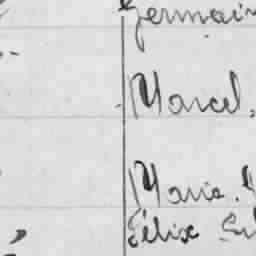 Germain
Marcel,
Marie.
Félix